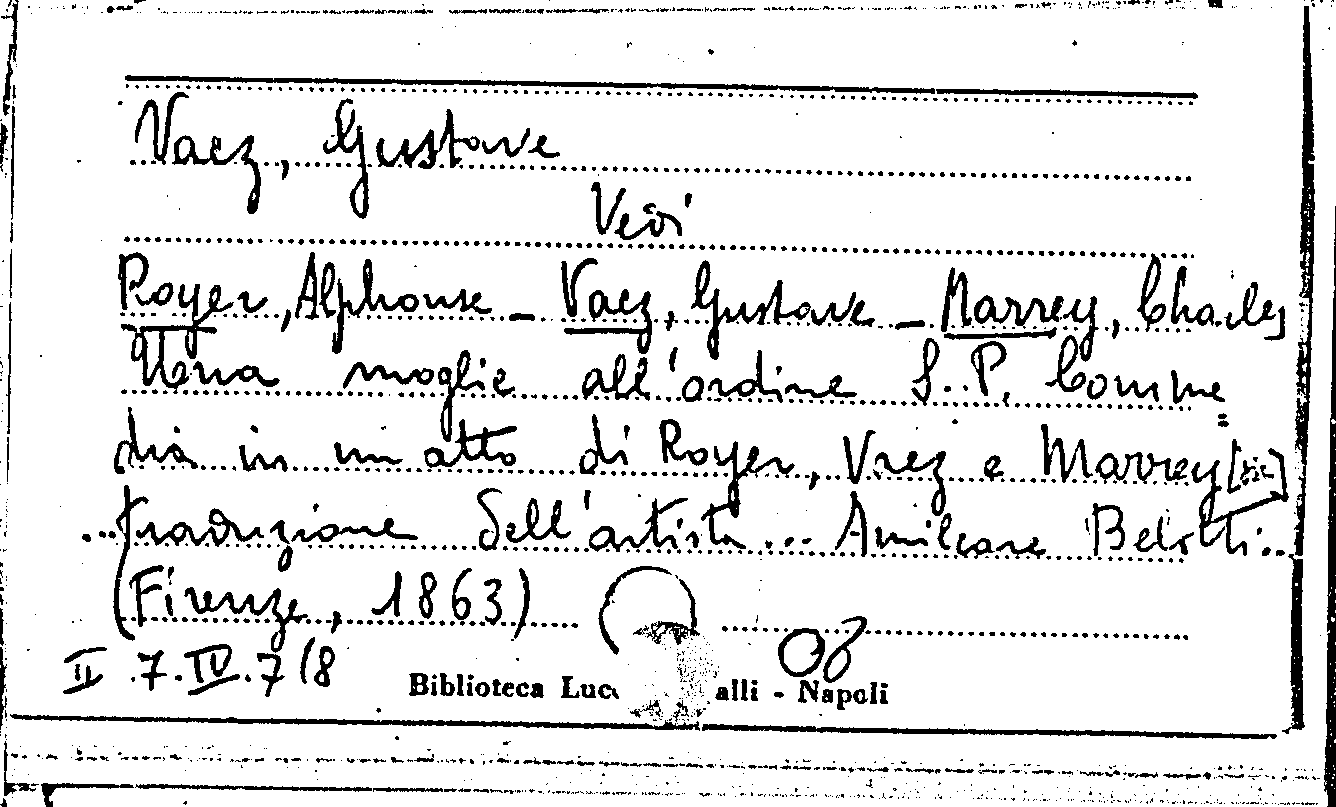 Vaez, Gustave
Vedi
Royer, Alphonse – Vaez, Gustave – Marrey, Charles
Una moglie all'ordine S. P. Comme=
dia in un atto di Royer, Vaez e Marrey [sic]
...traduzione dell'artista... Amilcare Belotti...
(Firenze, 1863)
II 7.IV.7 (8
Biblioteca Luc alli - Napoli